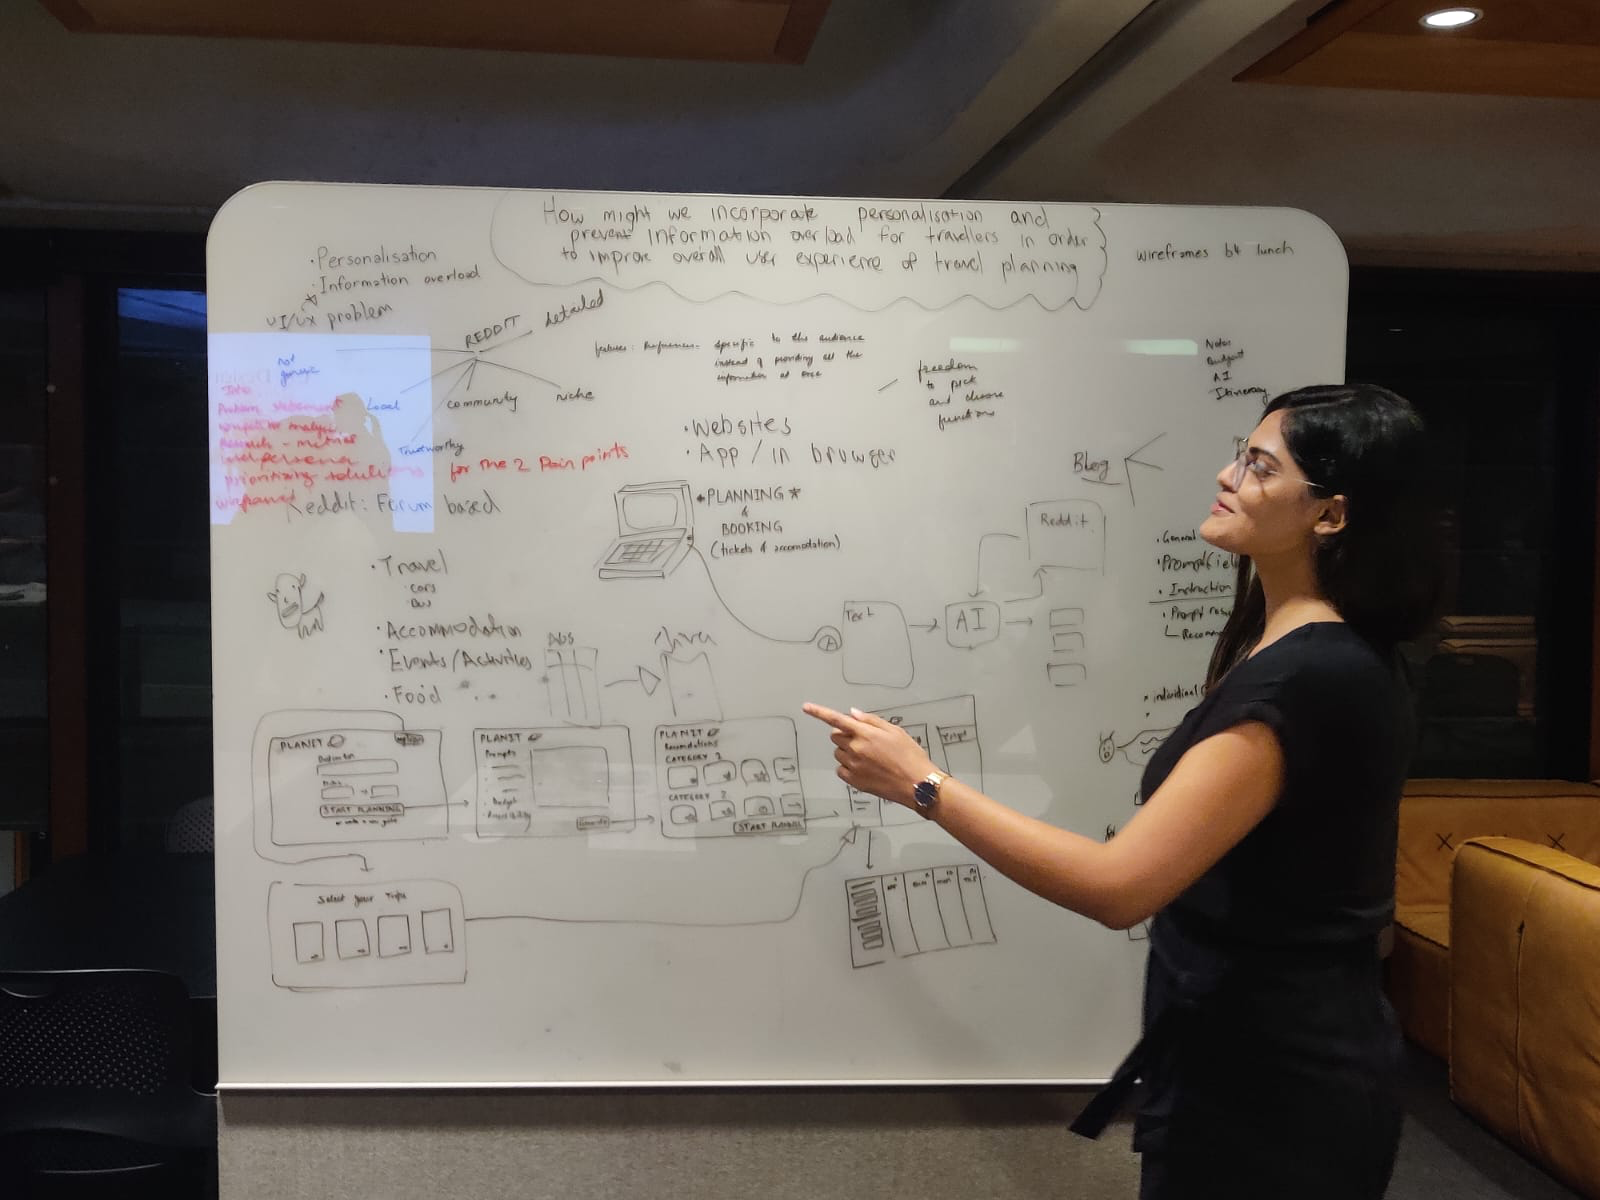 How might we incorporate personalisation and
prevent information overload for travellers in order
to improve overall user experience of travel planning
wireframes b4 lunch
· Personalisation
· Information overload
UI/UX problem
REDDIT
detailed
not
generic
Local
community
niche
Trustworthy
Intro
Problem statement
competitor analysis
Research - metrics
persona
prioritizing
wireframes
for the 2 Pain points
Reddit: Forum based
features:
specific to the audience
instead of providing all the
information at once
freedom
to pick
and choose
functions
Notes
Budget
AI
Itinerary
· Websites
· App / in browser
Blog
*PLANNING*
&
BOOKING
(tickets & accomodation)
Reddit
Text
AI
· General
· Instruction
· Travel
· cars
· Bus
· Accommodation
· Events/Activities
· Food
PLANIT
START PLANNING
PLANIT
Prompts
· Budget
PLANIT
CATEGORY 1
CATEGORY 2
START PLANNING
Select your Trips